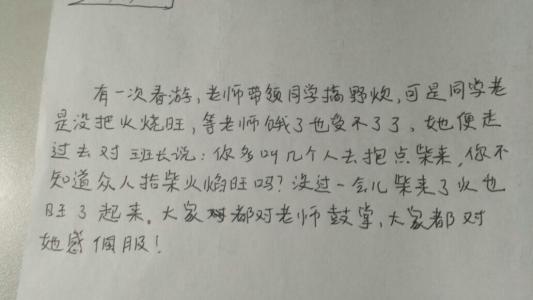 有一次春游，老师带领同学搞野炊，可是同学老
是没把火烧旺，等老师饿了也受不了了，她便走
过去对班长说：你多叫几个人去抱点柴来，你不
知道众人抬柴火焰旺吗？没过一会儿柴来了火也
旺了起来。大家都对老师鼓掌，大家都对
她感佩服！